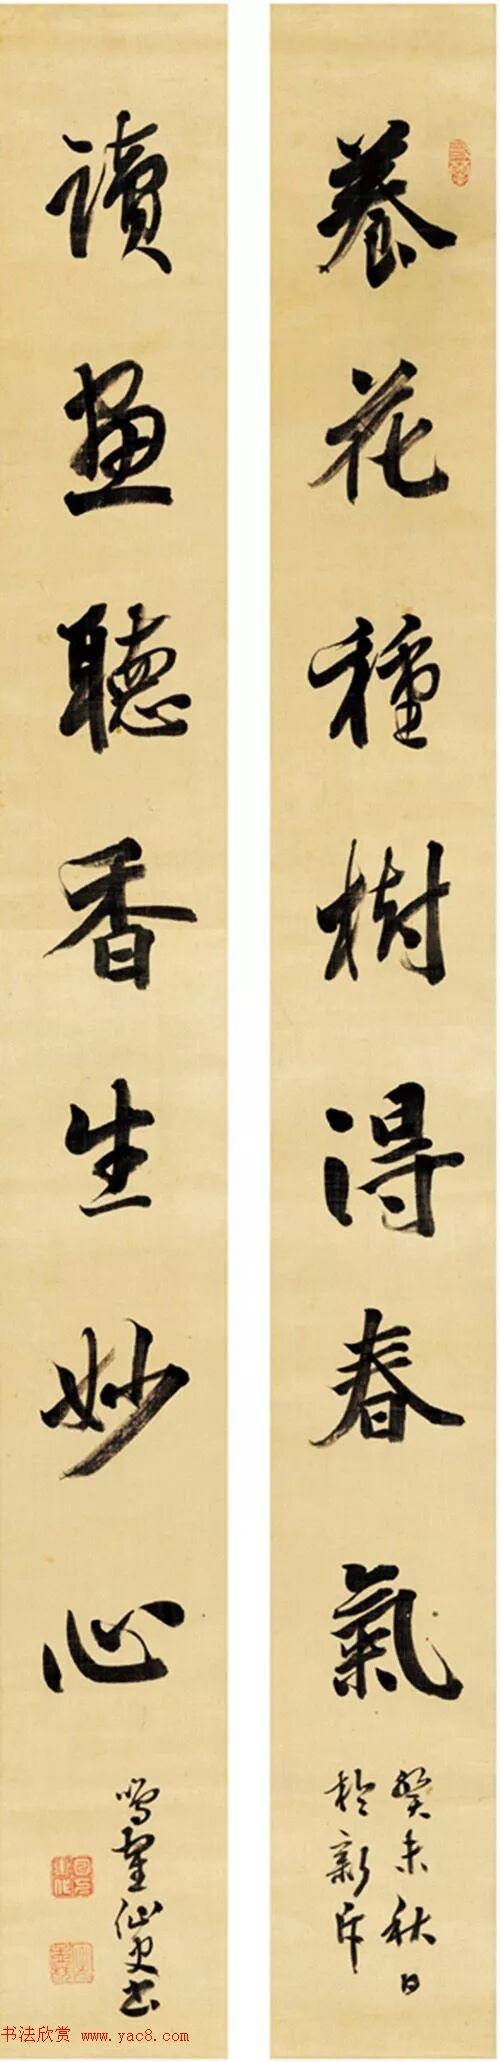 養花種樹得春氣
癸未秋日
於新斥
讀畫聽香生妙心
鳴壑仙史書
书法欣赏 www.yac8.com